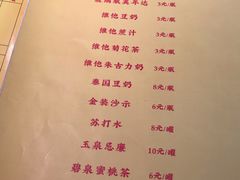 玻璃瓶黄芬达 3元/瓶
维他豆奶 3元/瓶
维他蔗汁 3元/瓶
维他菊花茶 3元/瓶
维他朱古力奶 3元/瓶
泰国豆奶 8元/瓶
金装沙示 6元/瓶
苏打水 8元/罐
玉泉忌廉 10元/罐
碧泉蜜桃茶 6元/罐